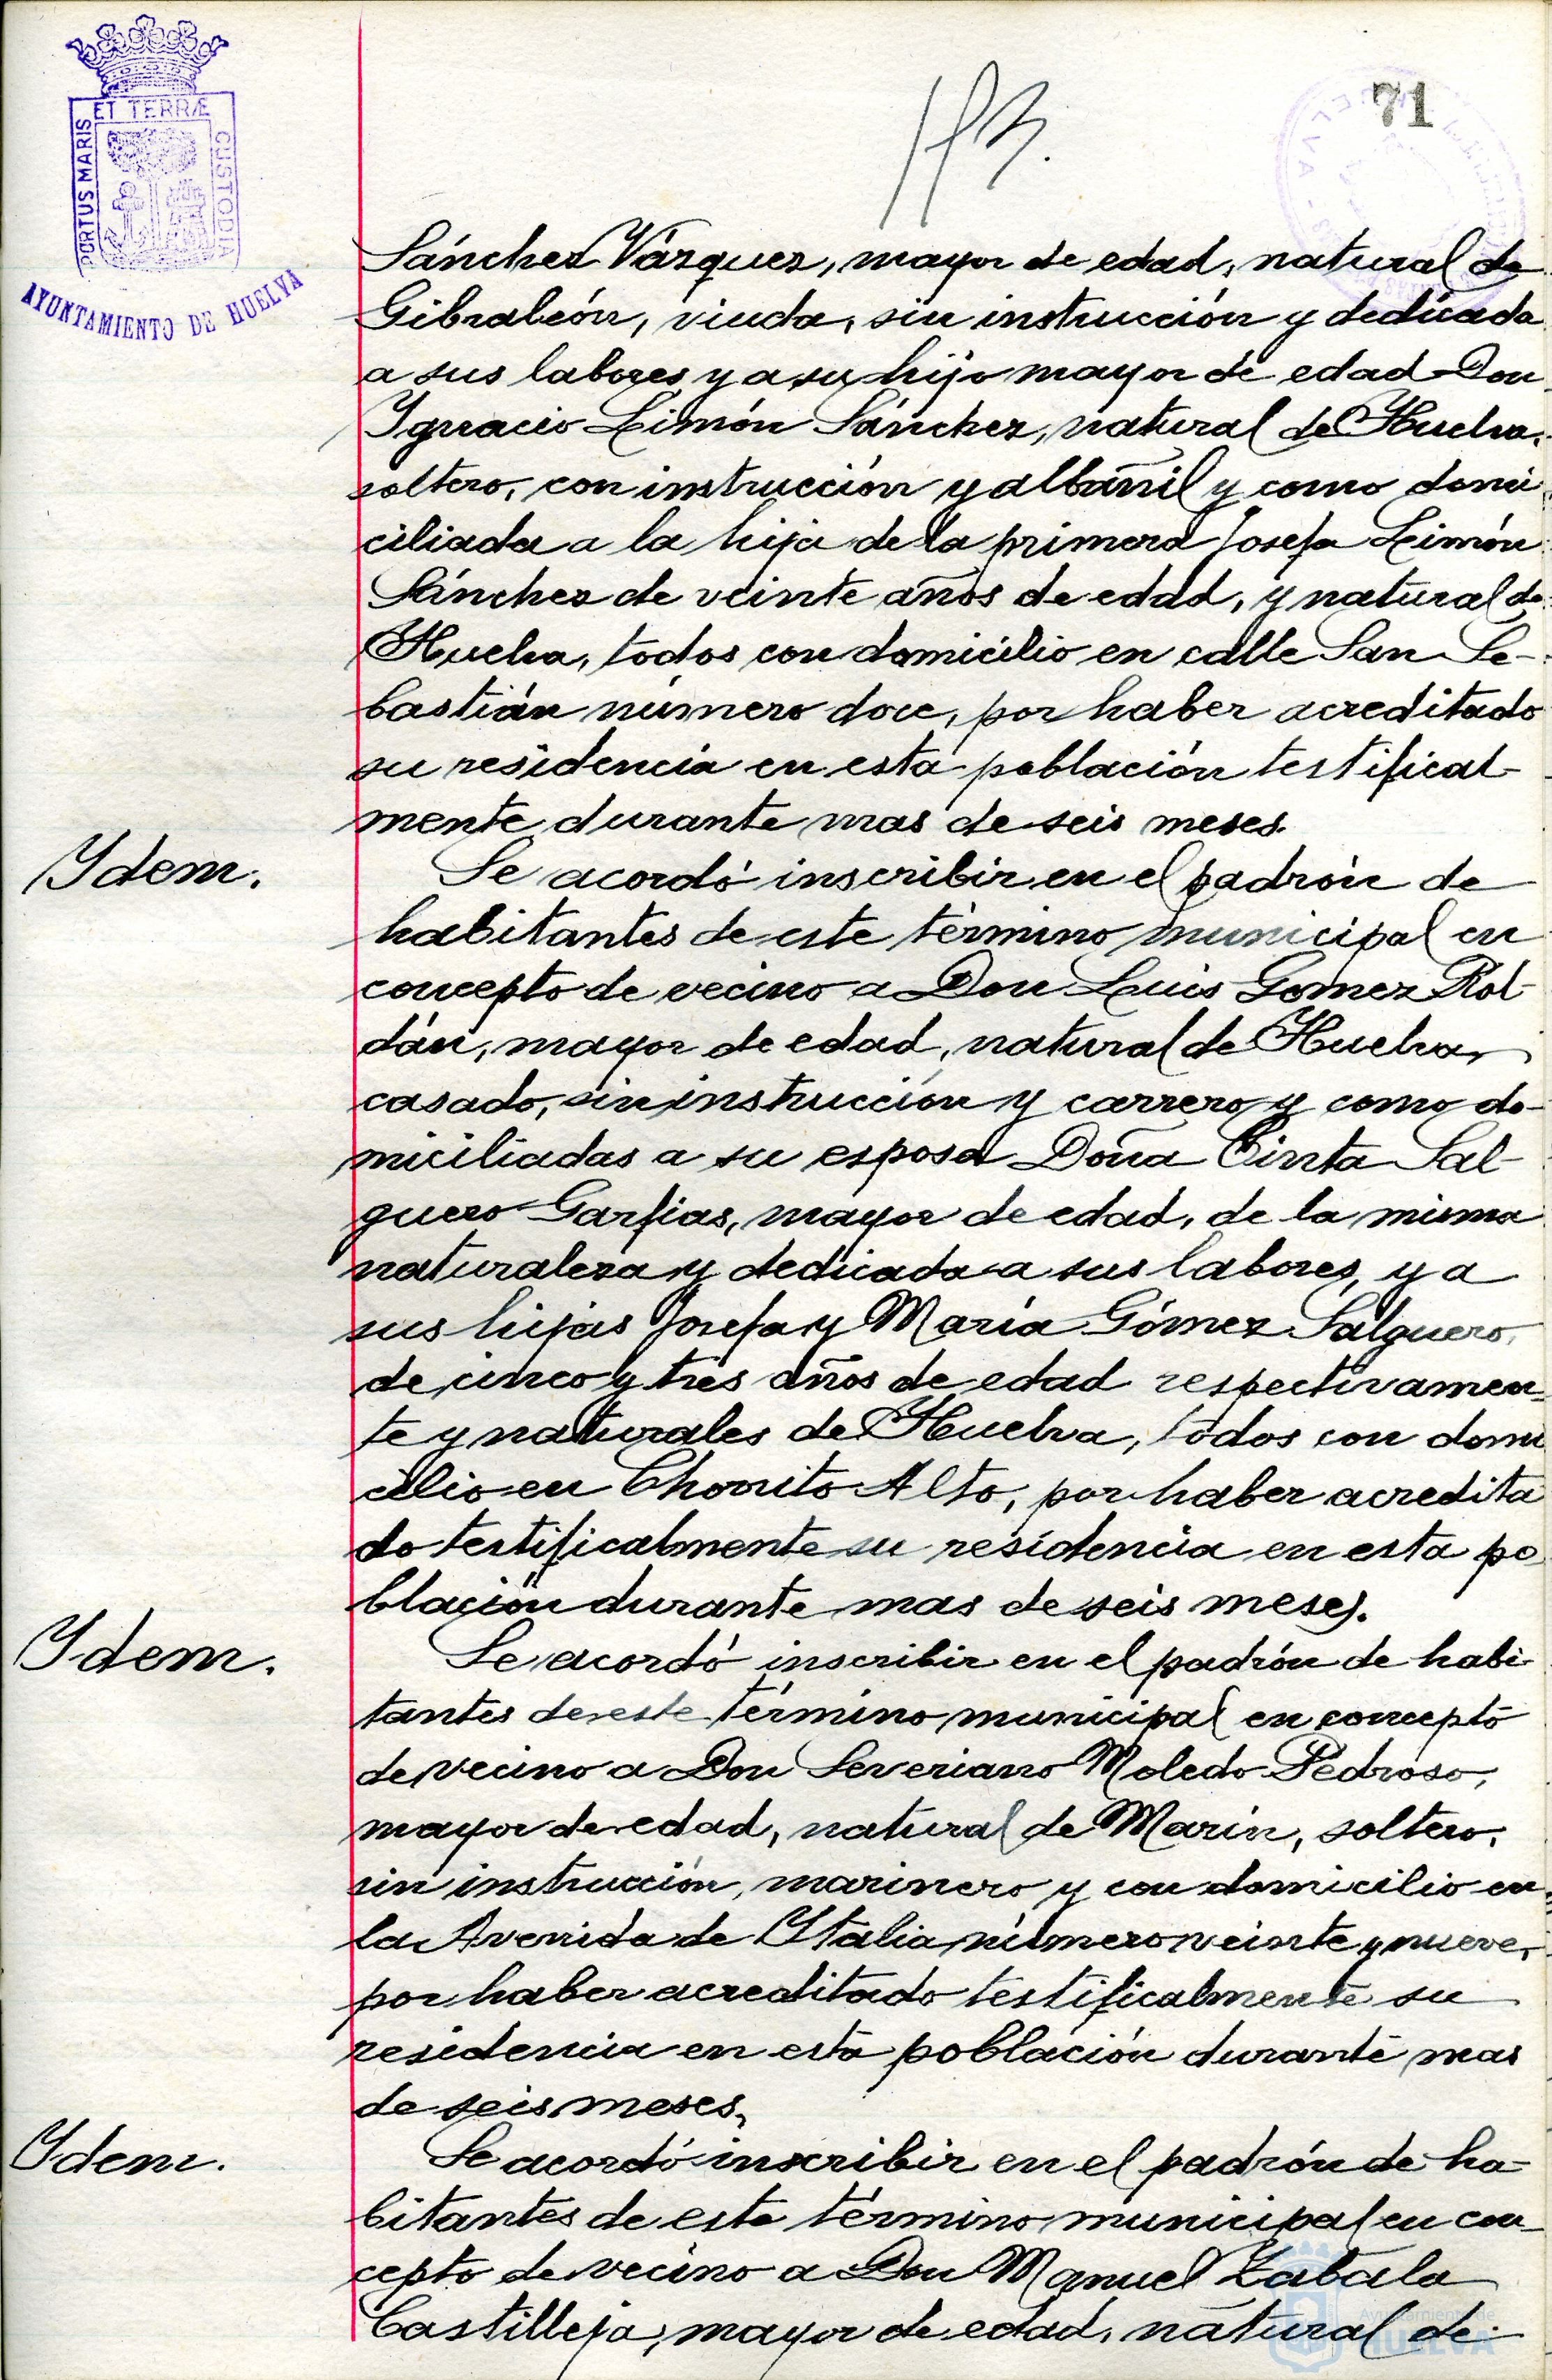 PORTUS MARIS ET TERRÆ CUSTODIA
AYUNTAMIENTO DE HUELVA
71
Sánchez Vázquez, mayor de edad, natural de
Gibraleón, viuda, sin instrucción y dedicada
a sus labores y a su hijo mayor de edad Don
Ygnacio Limón Sánchez, natural de Huelva,
soltero, con instrucción y albañil y como domi
ciliada a la hija de la primera Josefa Limón
Sánchez de veinte años de edad, y natural de
Huelva, todos con domicilio en calle San Se-
bastián número doce, por haber acreditado
su residencia en esta población testifical-
mente durante mas de seis meses.
Ydem.
Se acordó inscribir en el padrón de
habitantes de este término municipal en
concepto de vecino a Don Luis Gomez Rol-
dán, mayor de edad, natural de Huelva,
casado, sin instrucción y carrero y como do-
miciliadas a su esposa Doña Cinta Sal-
guero Garfias, mayor de edad, de la misma
naturaleza y dedicada a sus labores, y a
sus hijas Josefa y María Gómez Salguero,
de cinco y tres años de edad respectivamen-
te y naturales de Huelva, todos con domi
cilio en Chorrito Alto, por haber acredita
do testificalmente su residencia en esta po
blación durante mas de seis meses.
Ydem.
Se acordó inscribir en el padrón de habi-
tantes de este término municipal en concepto
de vecino a Don Severiano Moledo Pedroso,
mayor de edad, natural de Marín, soltero,
sin instrucción, marinero y con domicilio en
la Avenida de Ytalia número veinte y nueve,
por haber acreditado testificalmente su
residencia en esta población durante mas
de seis meses.
Ydem.
Se acordó inscribir en el padrón de ha-
bitantes de este término municipal en con-
cepto de vecino a Don Manuel Zabala
Castilleja, mayor de edad, natural de
Ayuntamiento de
HUELVA